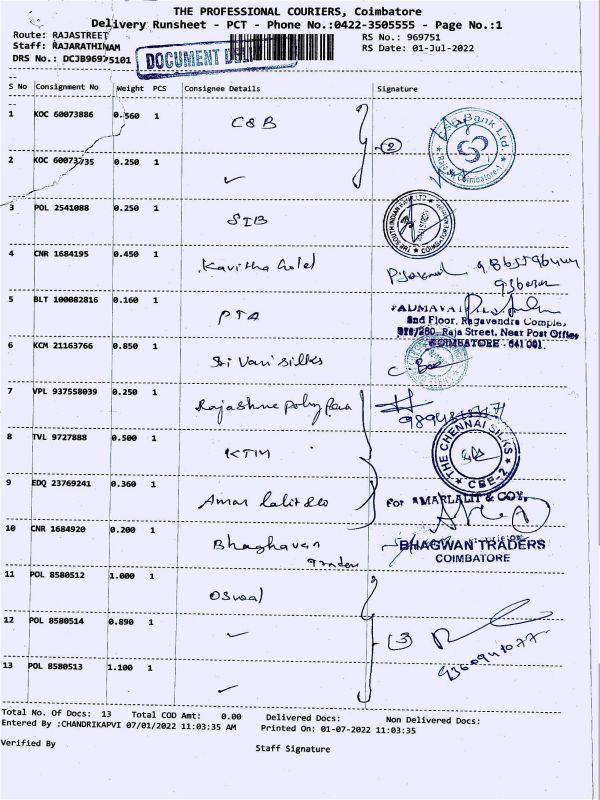 THE PROFESSIONAL COURIERS, Coimbatore
Delivery Runsheet - PCT - Phone No.:0422-3505555 - Page No.:1
Route: RAJASTREET RS No.: 969751
Staff: RAJARATHINAM RS Date: 01-Jul-2022
DRS No.: DCJB96975101 DOCUMENT
S No Consignment No Weight PCS Consignee Details Signature
1 KOC 60073886 0.560 1 CSB
(2)
Bank Ltd.
Coimbatore-1.
2 KOC 60073735 0.250 1 ✓
3 POL 2541088 0.250 1 SIB
COIMBATORE
4 CNR 1684195 0.450 1 Kavitha Gold
5 BLT 100082816 0.160 1 PTA
2nd Floor, Ragavendra Complex,
Raja Street, Near Post Office
COIMBATORE - 641 001.
6 KCM 21163766 0.850 1 Sri Vari Silks
7 VPL 937558039 0.250 1
8 TVL 9727888 0.500 1 KTM
THE CHENNAI SILKS
CBE-2
9 EDQ 23769241 0.360 1 Amar Lalit & co
For AMARLALIT & COY,
10 CNR 1684920 0.200 1 Bhaghavan
Traders
BHAGWAN TRADERS
COIMBATORE
11 POL 8580512 1.000 1 Oswal
12 POL 8580514 0.890 1 ✓
(3)
13 POL 8580513 1.100 1 ✓
Total No. Of Docs: 13 Total COD Amt: 0.00 Delivered Docs: Non Delivered Docs:
Entered By :CHANDRIKAPVI 07/01/2022 11:03:35 AM Printed On: 01-07-2022 11:03:35
Verified By Staff Signature